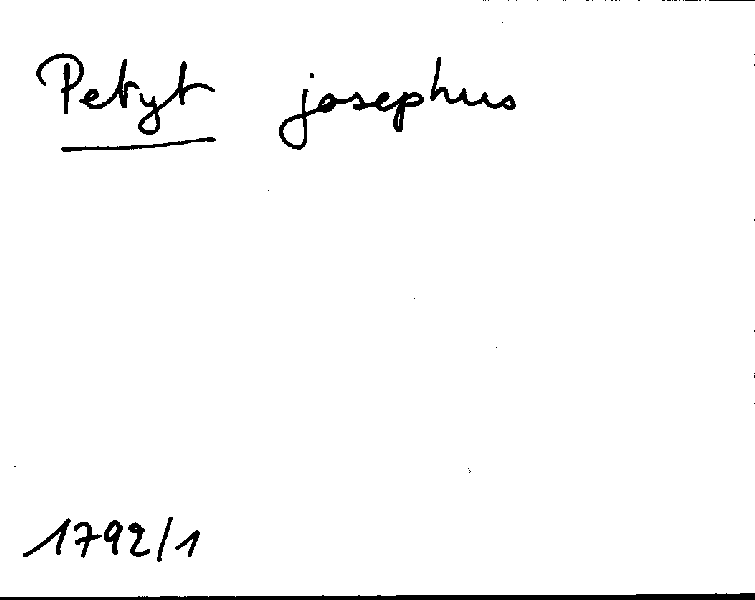 Petyt josephus
1792/1